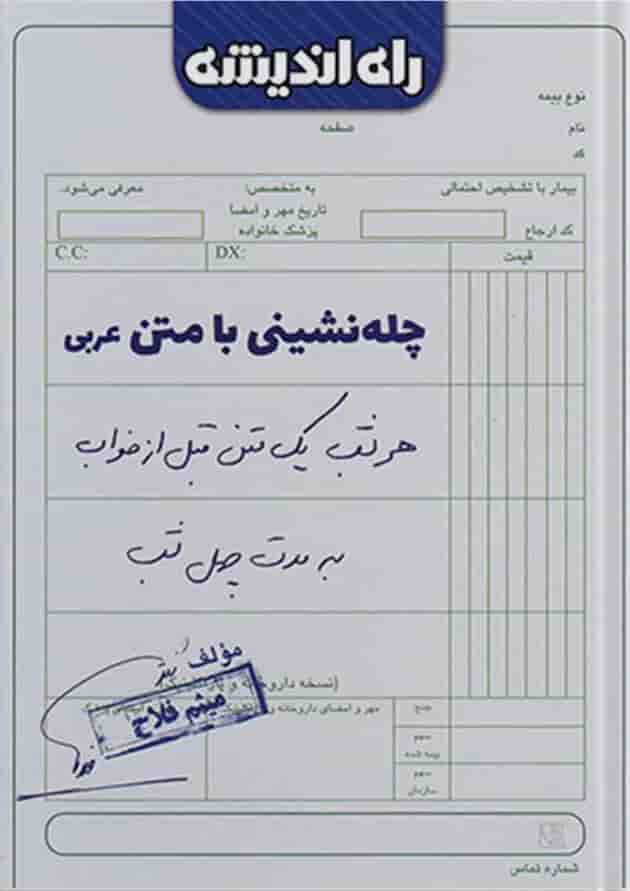 راه اندیشه
نوع بیمه
نام
صفحه
کد
بیمار با تشخیص احتمالی
به متخصص:
معرفی می‌شود.
کد ارجاع
تاریخ مهر و امضا
پزشک خانواده
قیمت
DX:
C.C:
چله‌نشینی با متن عربی
هر شب یک متن قبل از خواب
به مدت چهل شب
مؤلف
(نسخه داروخانه و
میثم فلاح
مهر و امضای داروخانه و
جمع
سهم
بیمه شده
سهم
سازمان
شماره تماس